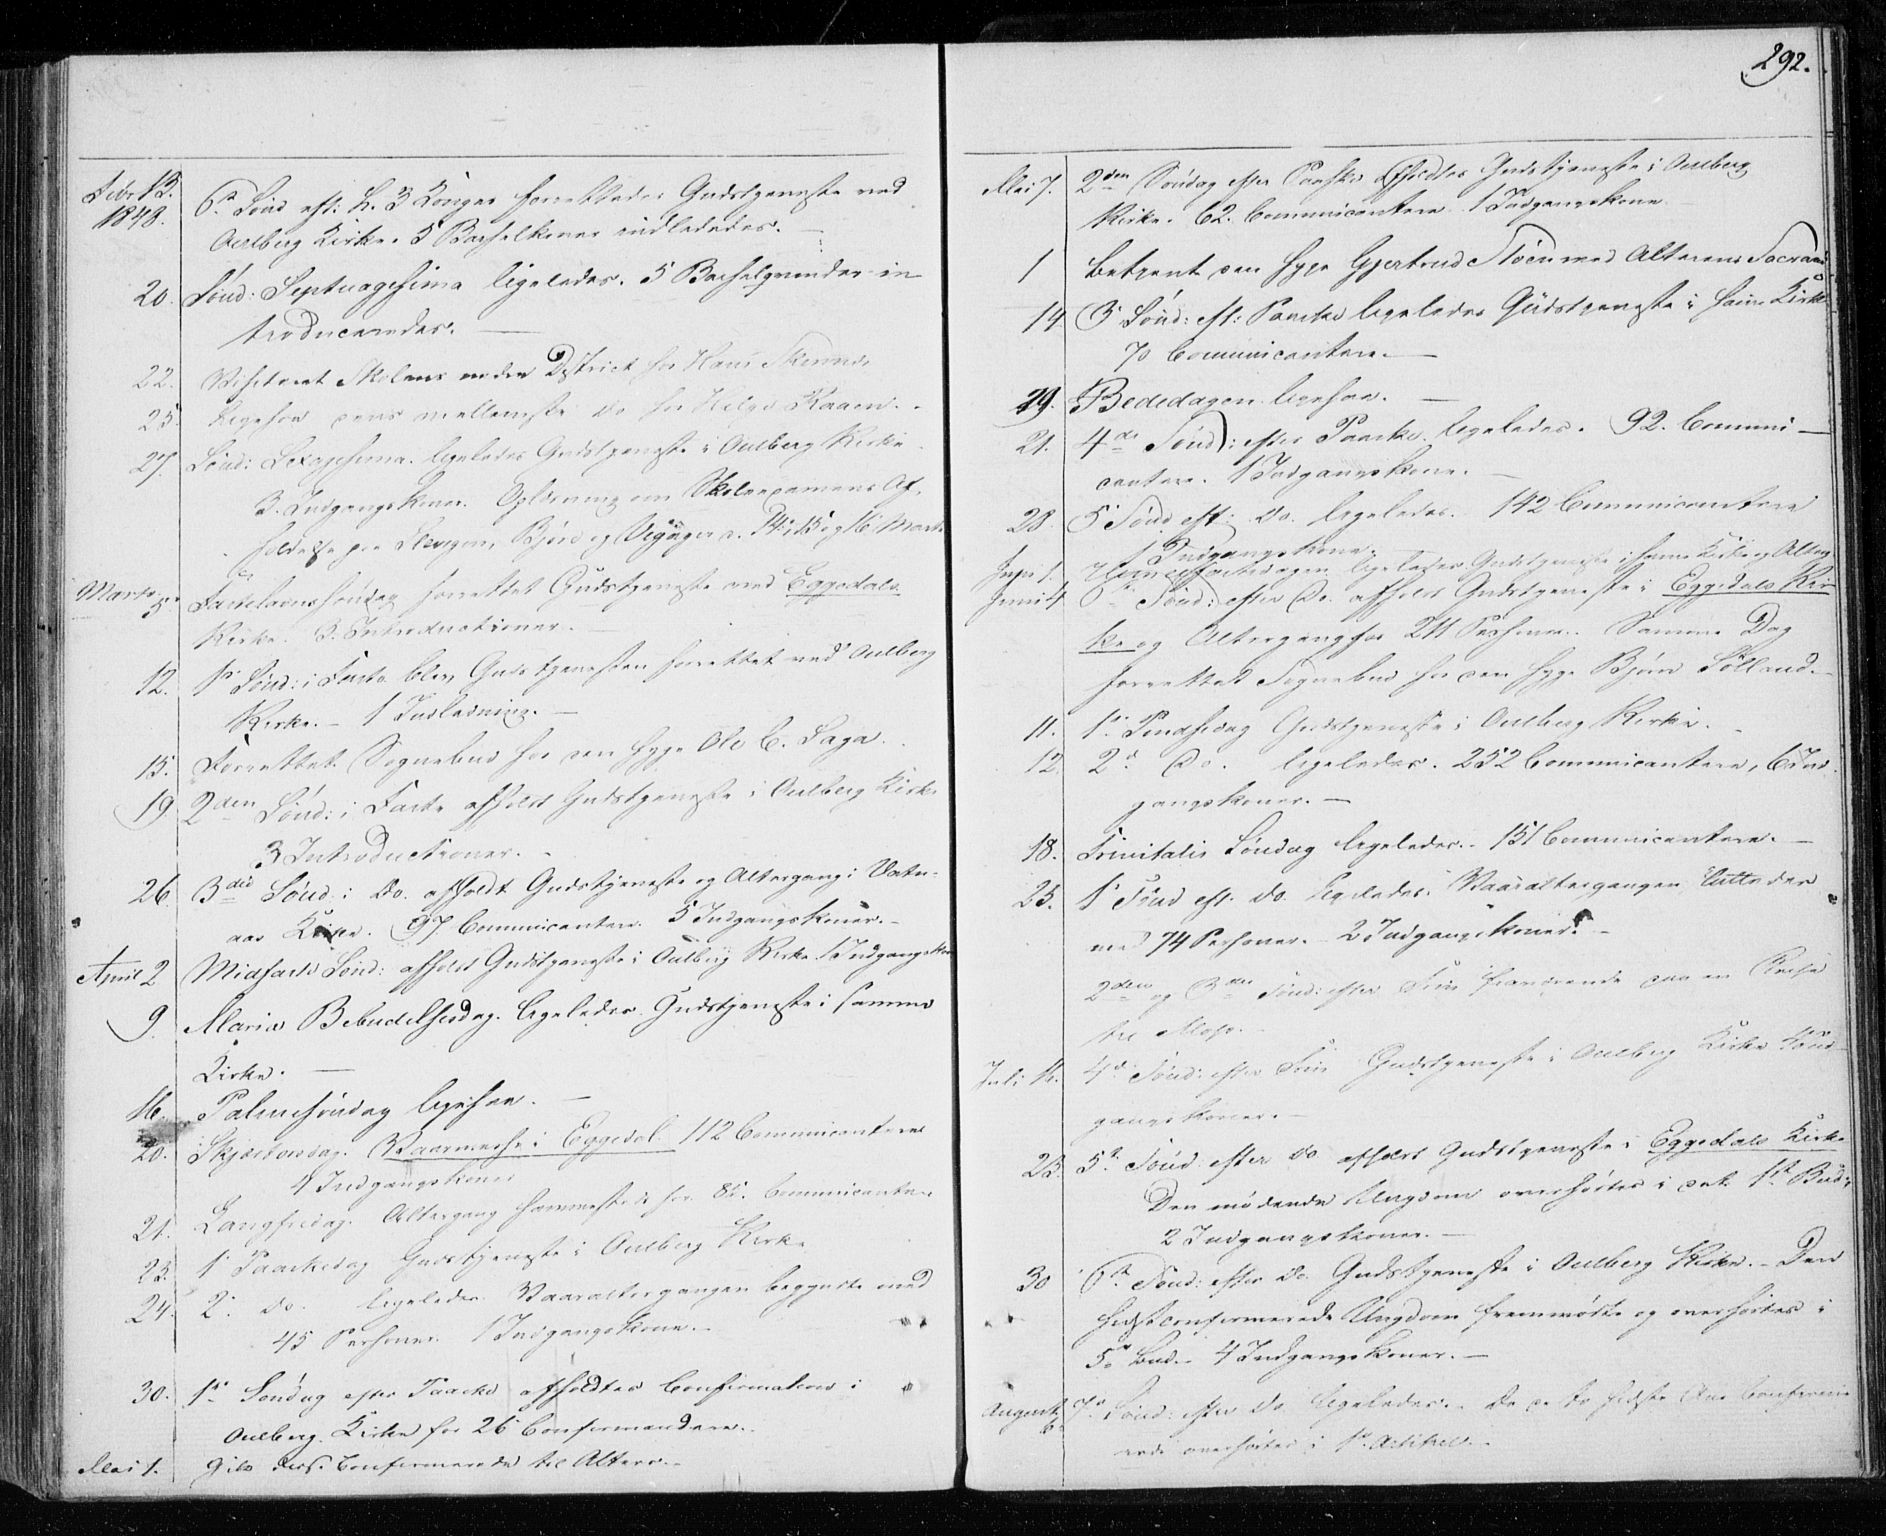 292.
Febr 13.
1848.
6te Sønd eft: H. 3 Konger forrettedes Gudstjeneste ved
Aulberg Kirke. 5 Barselkoner indlededes.
20. Sønd: Septuagesima ligeledes. 5 Barselqvinder in
troduceredes.
22. Visiteret Skolens District hos Hans
25. Ligesaa mellemste do hos Helge Raaen.
27. Sønd: Sexagesima ligeledes Gudstjeneste i Aulberg Kirke
3. Indgangskoner. Oplæsning om Skoleexamens Af-
holdelse paa Slevigen, Bjøre og 14, 15 og 16 Marts
Marts 5te Fastelavnssøndag forrettet Gudstjeneste ved Eggedals
Kirke. 3. Introductioner.
12. 1te Sønd: i Faste blev Gudstjenesten forrettet ved Aulberg
Kirke. - 1 Indledning. -
15. Forrettet Sognebud hos den syge Ole C. Laga.
19 2den Sønd: i Faste afholdt Gudstjeneste i Aulberg Kirke
3 Introductioner. -
26 3die Sønd: i Do. afholdt Gudstjeneste og Altergang i Vatn-
aas Kirke. 97 Communicantere. 5 Indgangskoner. -
April 2 Midfaste Sønd: afholdt Gudstjeneste i Aulberg Kirke. 1 Indgangskone
9. Mariæ Bebudelsesdag. ligeledes Gudstjeneste i samme
Kirke. -
16. Palmesøndag ligesaa. -
20. Skjærtorsdag. Vaarmesse i Eggedal. 112 Communicantere
4 Indgangskoner
21. Langfredag. Altergang sammesteds for 85. Communicantere
23. 1te Paaskedag Gudstjeneste i Aulberg Kirke
24. 2. do. ligeledes. Vaaraltergangen begyndte med
45 Personer. 1 Indgangskone. -
30. 1te Søndag efter Paaske afholdtes Confirmation i
Aulberg Kirke for 26 Confirmandere.
Mai 1. Gik disse Confirmerede til Alters. -
Mai 7. 2den Søndag efter Paaske afholdtes Gudstjeneste i Aulberg
Kirke. 62. Communicantere. 1 Indgangskone
1 betjent den syge Gjertrud Støen med Alterens Sacram
14 3 Sønd: eft: Paaske ligeledes Gudstjeneste i samme Kirke
70 Communicantere. -
19. Bededagen ligesaa. -
21. 4de Sønd: efter Paaske ligeledes. 92. Communi-
cantere. 1 Indgangskone. -
28. 5 Sønd eft: Do. ligeledes. 142 Communicantere
1 Indgangskone.
Juni 1. Himmelfartsdagen ligeledes Gudstjeneste i samme Kirke og Alterg.
Juni 4 6te Sønd: efter Do. afholdt Gudstjeneste i Eggedals Kir
ke og Altergang for 211 Personer. Samme Dag
forrettet Sognebud hos den syge Bjørn Sølland. -
11. 1te Pindsedag Gudstjeneste i Aulberg Kirke. -
12. 2d Do. ligeledes. 252 Communicantere, 6 Ind
gangskoner. -
18. Trinitatis Søndag ligeledes. - 151 Communicantere. -
25. 1te Sønd eft. do. ligeledes. Vaaraltergangen sluttedes
med 74 Personer. - 2 Indgangskoner. -
2den og 3die Sønd: efter Trin fraværende paa en Reise
til Moss. -
Juli 16. 4d Sønd: efter Trin Gudstjeneste i Aulberg Kirke
gangskoner. -
23. 5te Sønd: efter do afholdt Gudstjeneste i Eggedals Kirke
Den mødende Ungdom overhørtes i det 1te Bud.
2 Indgangskoner. -
30 6te Sønd: efter do. Gudstjeneste i Aulberg Kirke. - Den
sidst confirmerede Ungdom fremmødte og overhørtes i
5te Bud. - 4 Indgangskoner. -
August 6. 7de Sønd: efter Do. ligeledes. De sidste Aar Confirme
rede overhørtes i 1te Artikel. -